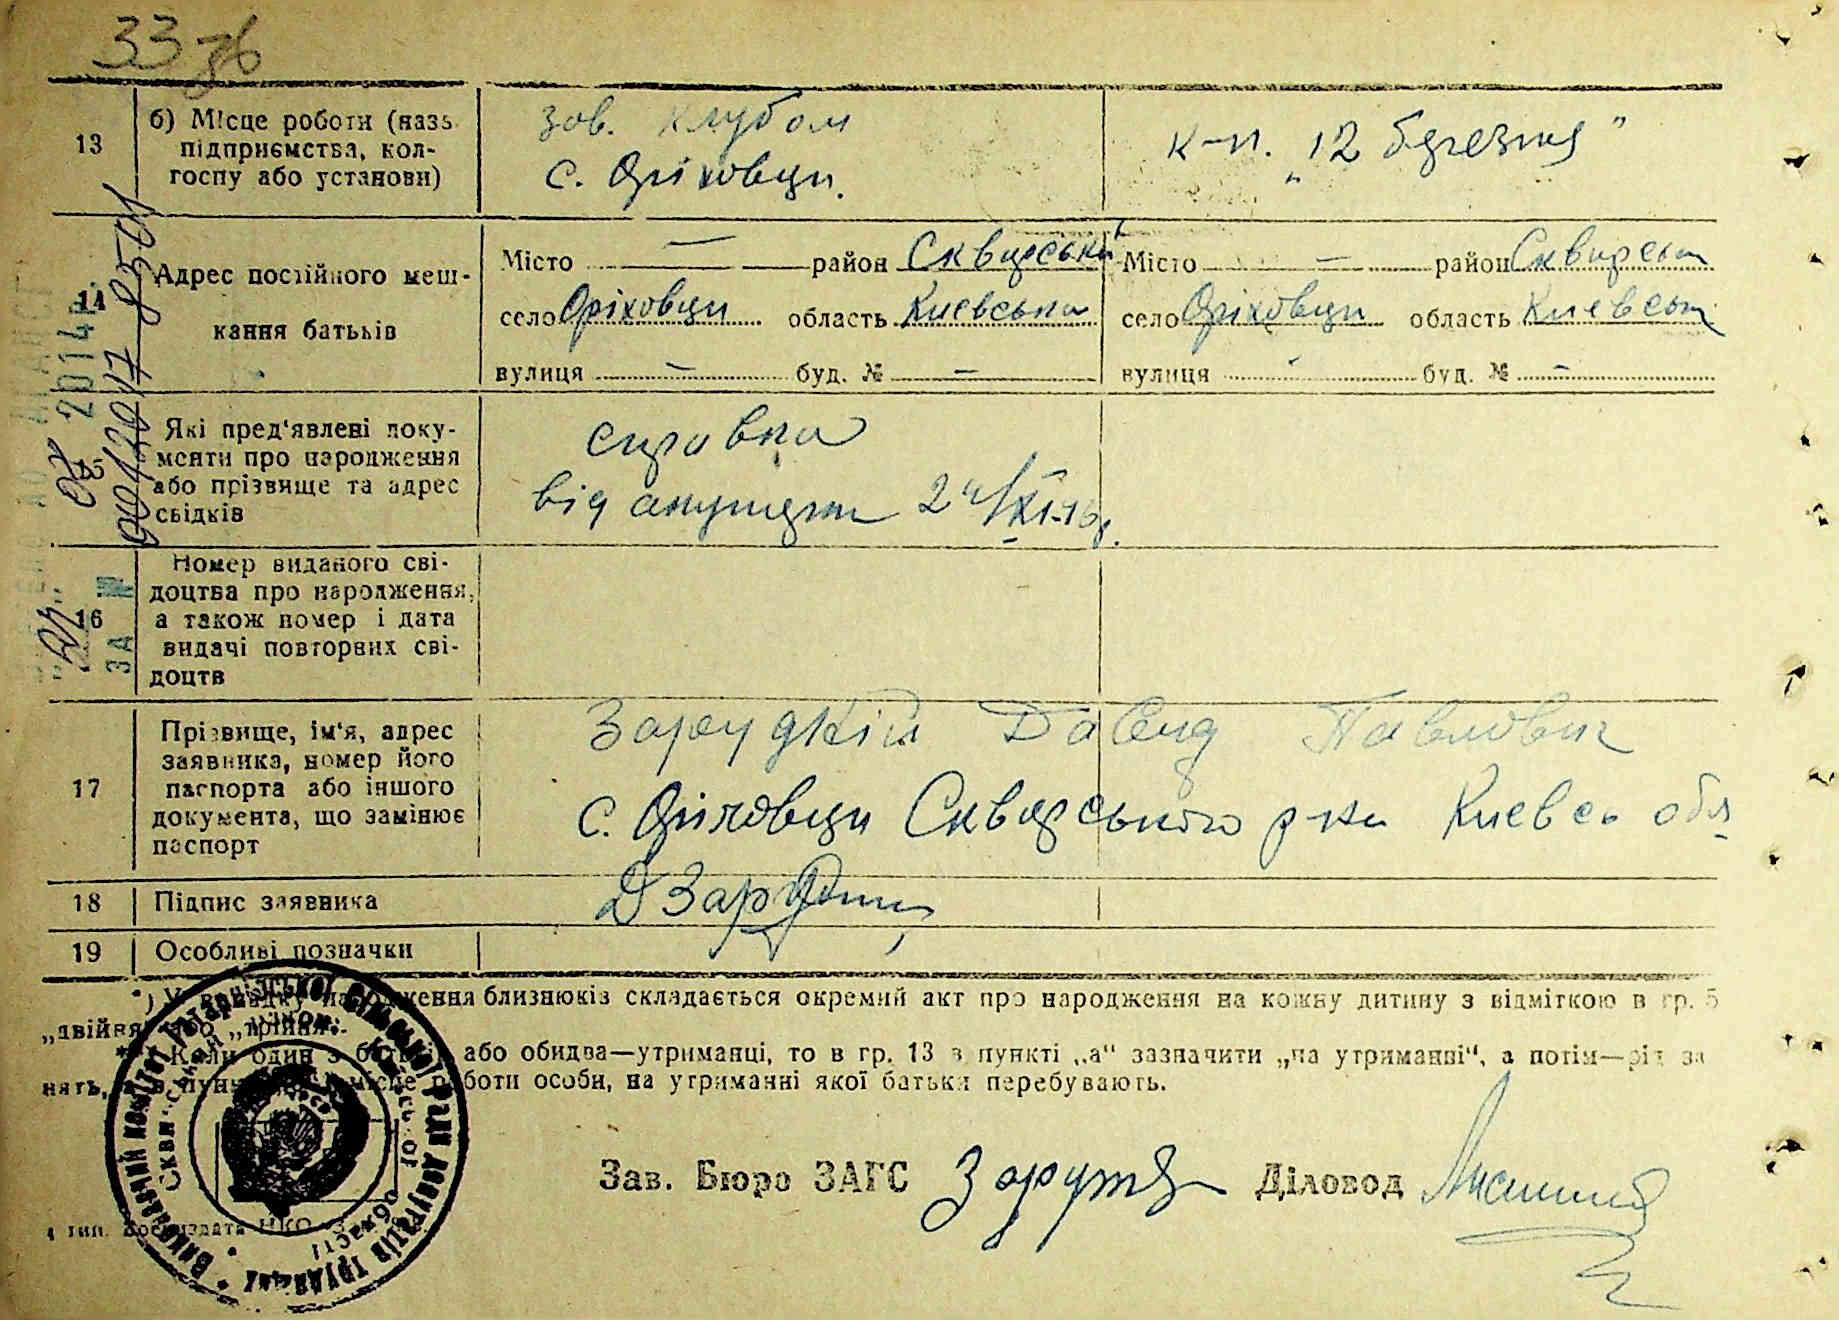 33 зв
13
б) Місце роботи (назв.
підприємства, кол-
госпу або установи)
зов. клубом
с. Оріховци.
к-п. „12 березня”
14
Адрес постійного меш-
кання батьків
Місто — район Сквирський
село Оріховци область Киевська
вулиця — буд. № —
Місто — район Сквирськ
село Оріховци область Киевськ
вулиця буд. № —
15
Які пред'явлені доку-
менти про народження
або прізвище та адрес
свідків
справка
від акушерки 24/XI-46р.
16
Номер виданого сві-
доцтва про народження,
а також номер і дата
видачі повторних сві-
доцтв
17
Прізвище, ім'я, адрес
заявника, номер його
паспорта або іншого
документа, що замінює
паспорт
Зарудкій Давид Павлович
с. Оріховци Сквирського р-ка Киевсь обл
18
Підпис заявника
19
Особливі позначки
*) У випадку народження близнюків складається окремий акт про народження на кожну дитину з відміткою в гр. 5
„двійня“ або „трійня“.
**) Коли один з батьків або обидва—утриманці, то в гр. 13 в пункті „а“ зазначити „на утриманні“, а потім—рід за
нять, в пункті місце роботи особи, на утриманні якої батьки перебувають.
Зав. Бюро ЗАГС
Діловод
2014р.
ЗА №